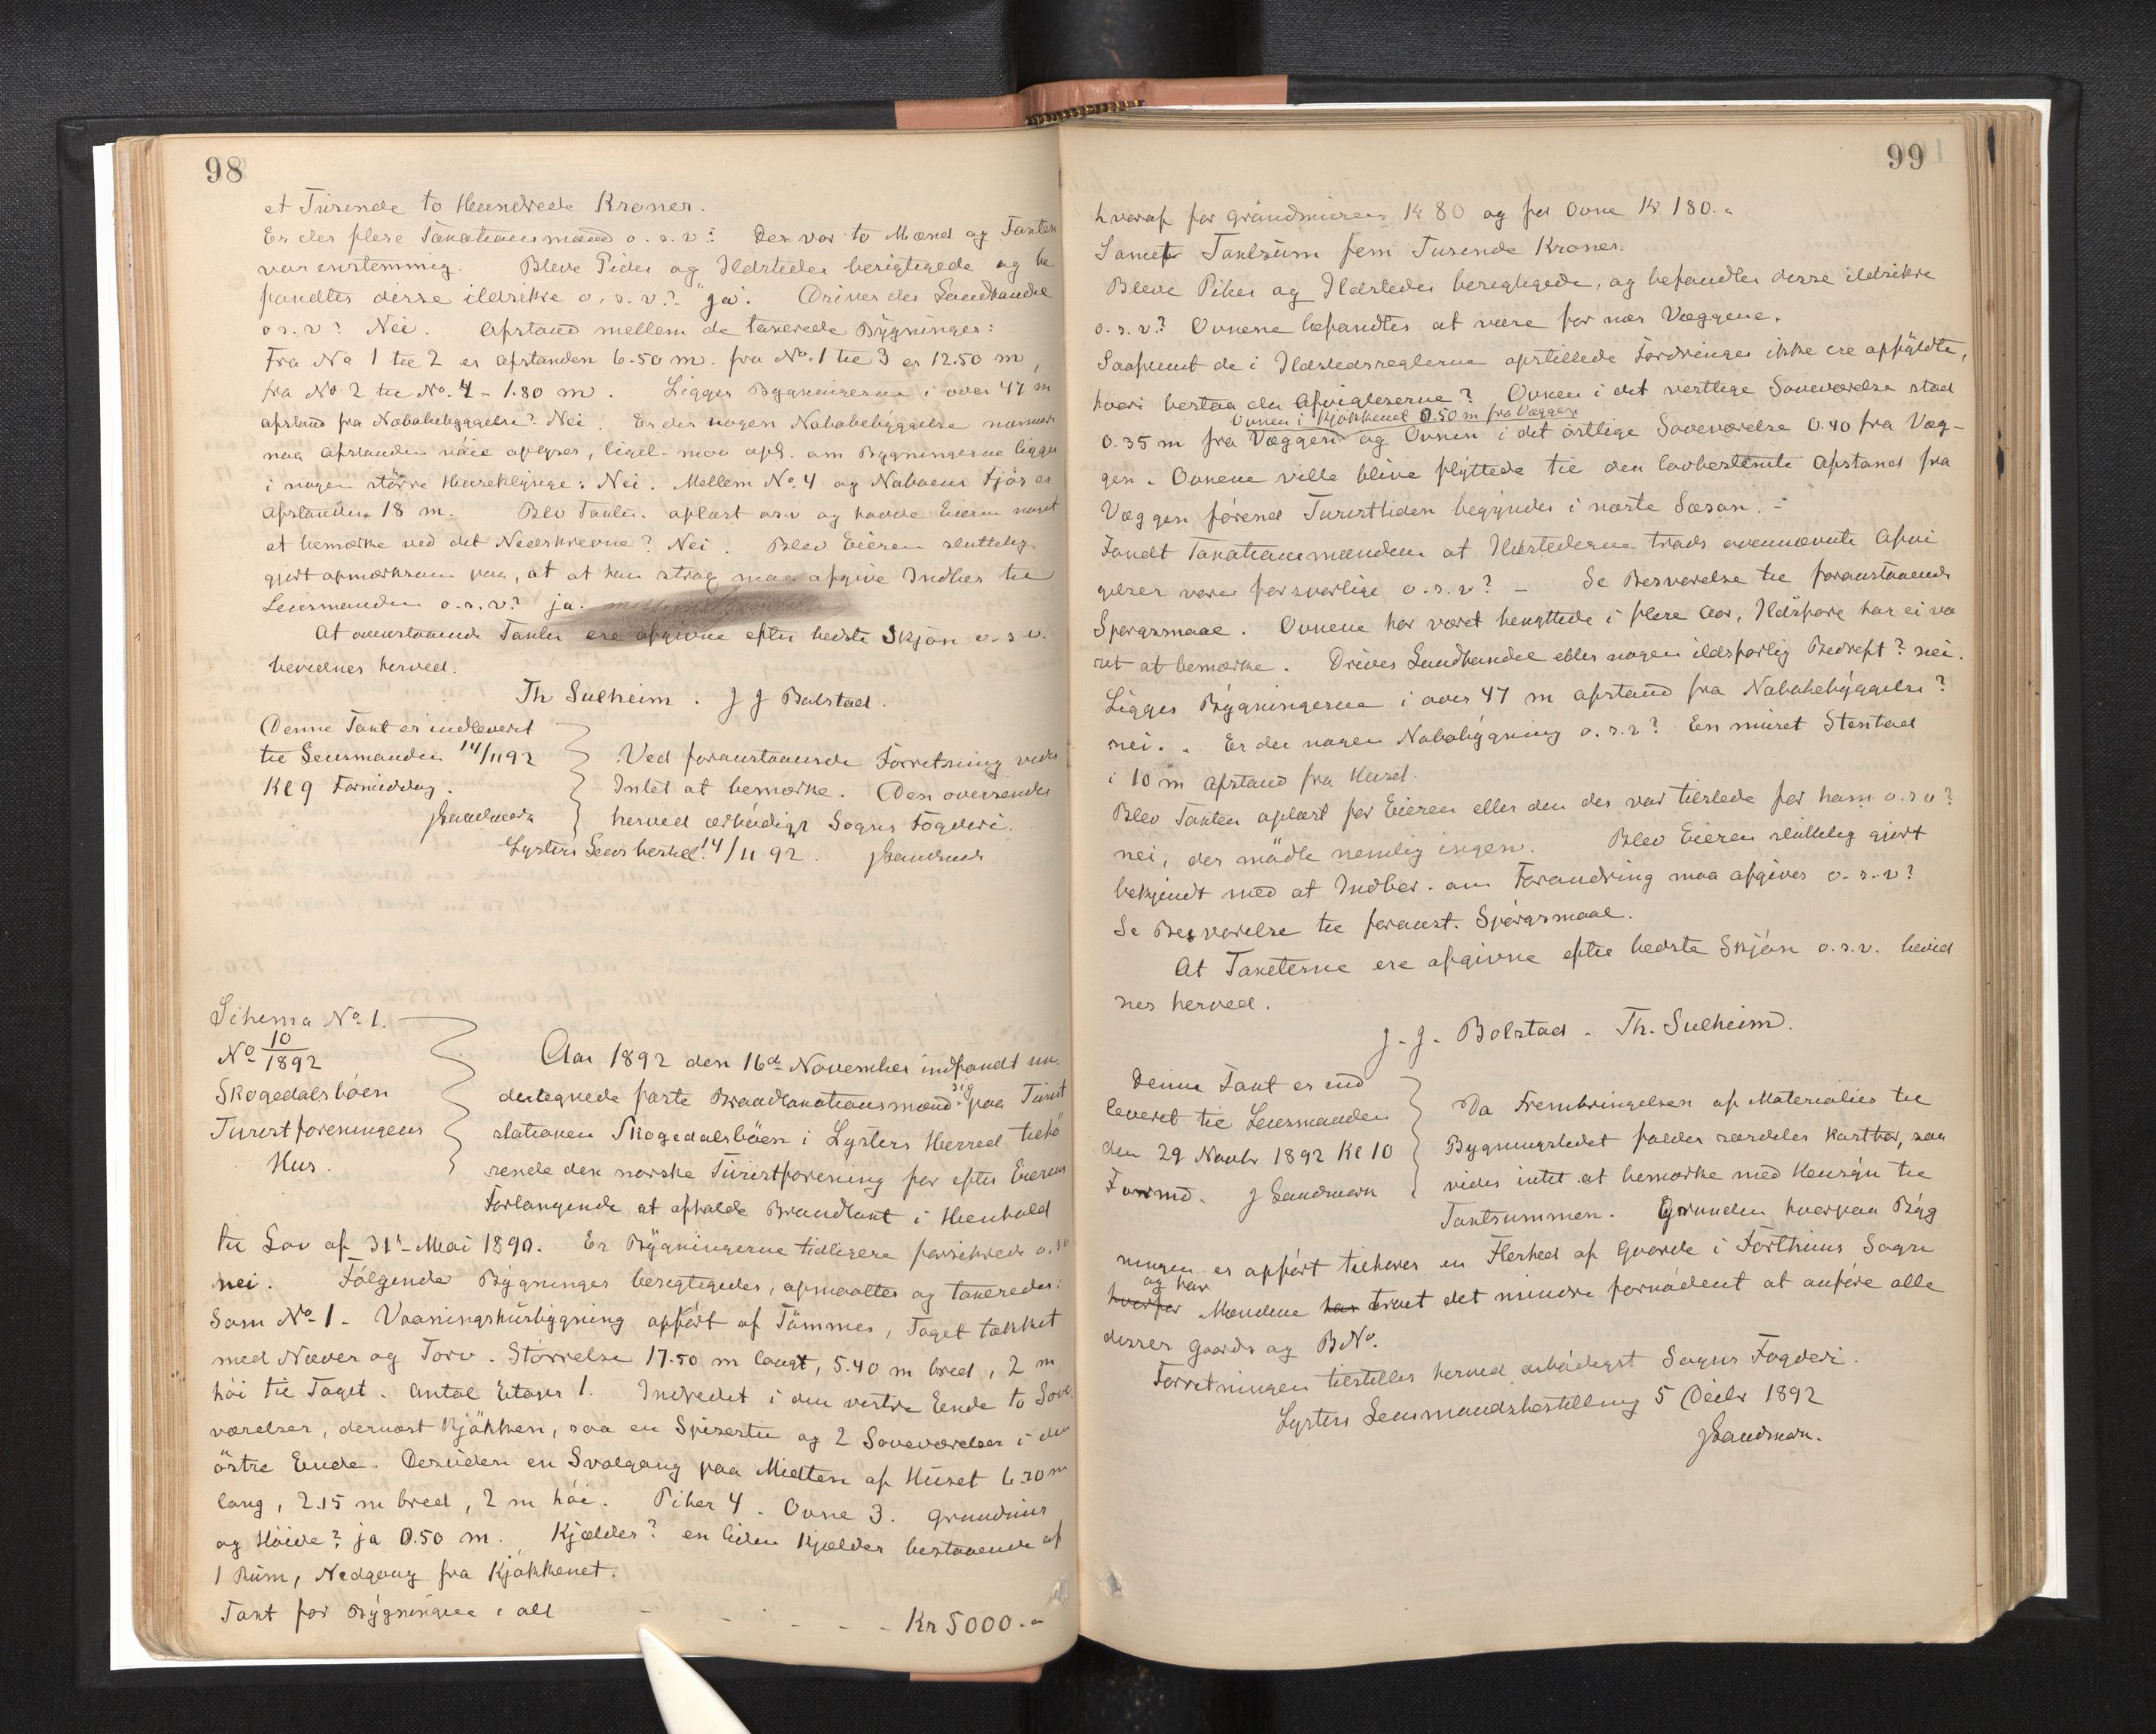 98
et Tusende to Hundrede Kroner.
Er der flere Taxationsmænd o. s. v: Der var to Mænd og Taxten
var enstemmig. Bleve Piber og Ildsteder besigtigede og be
fandtes disse ildsikre o. s. v.? "ja". Drives der Landhandel
o s. v? Nei. Afstand mellem de taxerede Bygninger:
Fra No 1 til 2 er afstanden 6.50 m. fra No. 1 til 3 er 12.50 m,
fra No 2 til No. 4 - 1.80 m. Ligger Bygningerne i over 47 m
afstand fra Nabobebyggelse? Nei. Er der nogen Nabobebyggelse nærmere
maa afstanden nöie opgives, ligel. maa opl. om Bygningerne ligger
i nogen större Huseklynge: Nei. Mellem No. 4 og Naboens Fjös er
afstanden 18 m. Blev Taxten oplæst o.s.v og havde Eieren noget
at bemærke ved det Nedskrevne? Nei. Blev Eieren sluttelig
gjort opmærksom paa, at at han strax maa afgive Indber til
Lensmanden o. s. v? ja.
At ovenstaaende Taxter ere afgivne efter bedste Skjön o. s v.
bevidnes herved.
Th Sulheim. J J Bolstad.
Denne Taxt er indleveret
til Lensmanden 14/11 92
Kl 9 Formiddag.
JSandmark
Ved foranstaaende Forretning vides
Intet at bemærke. Den oversendes
herved ærbödigst Sogns Fogderi.
Lysters Lensbestill. 14/11 92. JSandmark
Schema No 1.
No 10/1892
Skogedalsböen
Turistforeningens
Hus.
Aar 1892 den 16de November indfandt un
dertegnede faste Brandtaxationsmænd sig paa Turist
stationen Skogedalsböen i Lysters Herred tilhö
rende den norske Turistforening for efter Eierens
Forlangende at afholde Brandtaxt i Henhold
til Lov af 31te Mai 1890. Er Bygningerne tidligere forsikrede o. sv
nei. Fölgende Bygninger besigtigedes, opmaaltes og taxeredes:
Som No 1. Vaaningshusbygning opfört af Tömmer, Taget tækket
med Næver og Torv. Störrelse 17.50 m langt, 5.40 m bred, 2 m
höi til Taget. Antal Etager 1. Indredet i den vestre Ende to Sove
værelser, dernæst Kjökken, saa en Spisestue og 2 Soveværelser i den
östre Ende. Desuden en Svalgang paa Midten af Huset 6.20 m
lang, 2.15 m bred, 2 m höi. Piber 4. Ovne 3. Grundmur
og Höide? ja 0.50 m. Kjælder? en liden Kjælder bestaaende af
1 Rum, Nedgang fra Kjökkenet.
Taxt for Bygningen i alt - - - - - Kr 5000.-
99
hvoraf for Grundmuren Kr 80 og for Ovne Kr 180.-
Samlet Taxtsum fem Tusende Kroner.
Bleve Piber og Ildsteder besigtigede, og befandtes disse ildsikre
o. s. v.? Ovnene befandtes at være for nær Væggene.
Saafremt de i Ildstedsreglerne opstillede Fordringer ikke ere opfyldte,
hvori bestaa da Afvigelserne? Ovnen i det vestlige Soveværelse stod
Ovnen i Kjökkenet 0.50 m fra Væggen
0.35 m fra Væggen og Ovnen i det östlige Soveværelse 0.40 fra Væg-
gen. Ovnene ville blive flyttede til den lovbestemte Afstand fra
Væggen förend Turisttiden begynder i næste Sæson. -
Fandt Taxationsmændene at Ildstederne trods ovennævnte Afvi
gelser vare forsvarlige o. s. v? - Se Besvarelse til foranstaaende
Spørgsmaal. Ovnene har været benyttede i flere Aar, Ildsfare har ei væ
ret at bemærke. Drives Landhandel eller nogen ildsfarlig Bedrift? nei.
Ligger Bygningerne i over 47 m afstand fra Nabobebyggelse?
nei. Er der nogen Nabobygning o. s. v? En muret Stenstal
i 10 m afstand fra Huset.
Blev Taxten oplæst for Eieren eller den der var tilstede for ham o. s v?
nei, der mödte nemlig ingen. Blev Eieren sluttelig gjort
bekjendt med at Indber. om Forandring maa afgives o. s. v?
Se Besvarelse til foranst. Spörgsmaal.
At Taxterne ere afgivne efter bedste Skjön o. s. v. bevid
nes herved.
J. J. Bolstad. Th. Sulheim.
Denne Taxt er ind
leveret til Lensmanden
den 29 Novbr 1892 Kl 10
Formd. J Sandmark
Da Frembringelsen af Materialier til
Bygningsstedet falder særdeles kostbar, saa
vides intet at bemærke med Hensyn til
Taxtsummen. Grunden hvorpaa Byg
ningen er opfört tilhører en Flerhed af Gaarde i Forthuns Sogn
og har
hvorfor Mændene har troet det mindre fornödent at anföre alle
disses Gaards og BNo.
Forretningen tilstilles herved ærbödigst Sogns Fogderi.
Lysters Lensmandsbestilling 5 Decbr 1892
JSandmark.